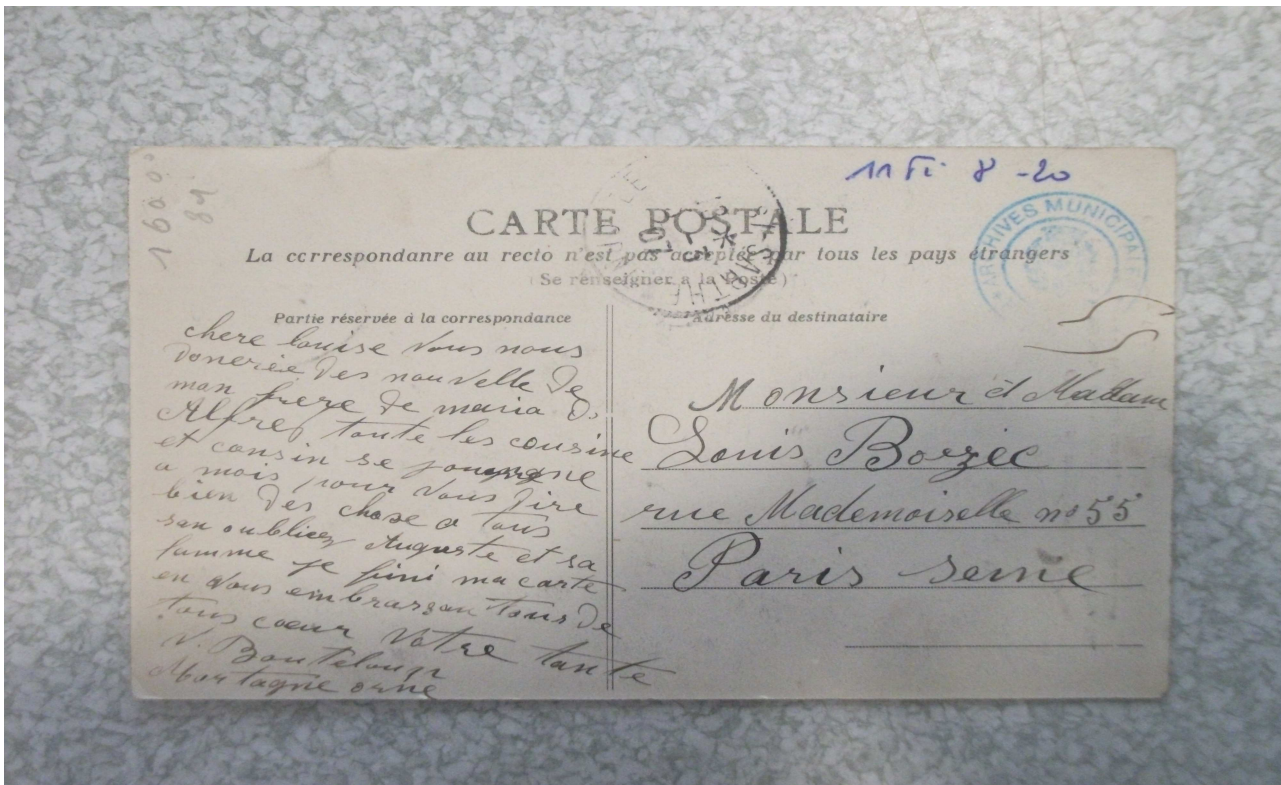 160 0
81
11 Fi 8 - 20
ARCHIVES MUNICIPALE
CARTE POSTALE
SARTHE
La ccrrespondanre au recto n'est pas acceptée par tous les pays étrangers
(Se renseigner a la Poste)
Partie réservée à la correspondance
chere louise vous nous
donerée des nouvelle de
mon frere de maria d
Alfred toute les cousine
et cousin se
a mois pour vous dire
bien des chose a tous
san oubliez Auguste et sa
famme je fini ma carte
en vous embrassan tous de
tous coeur votre tante
V. Bouteloup
Mortagne orne
Adresse du destinataire
Monsieur et Madame
Louis Bozéc
rue Mademoiselle no 55
Paris seine